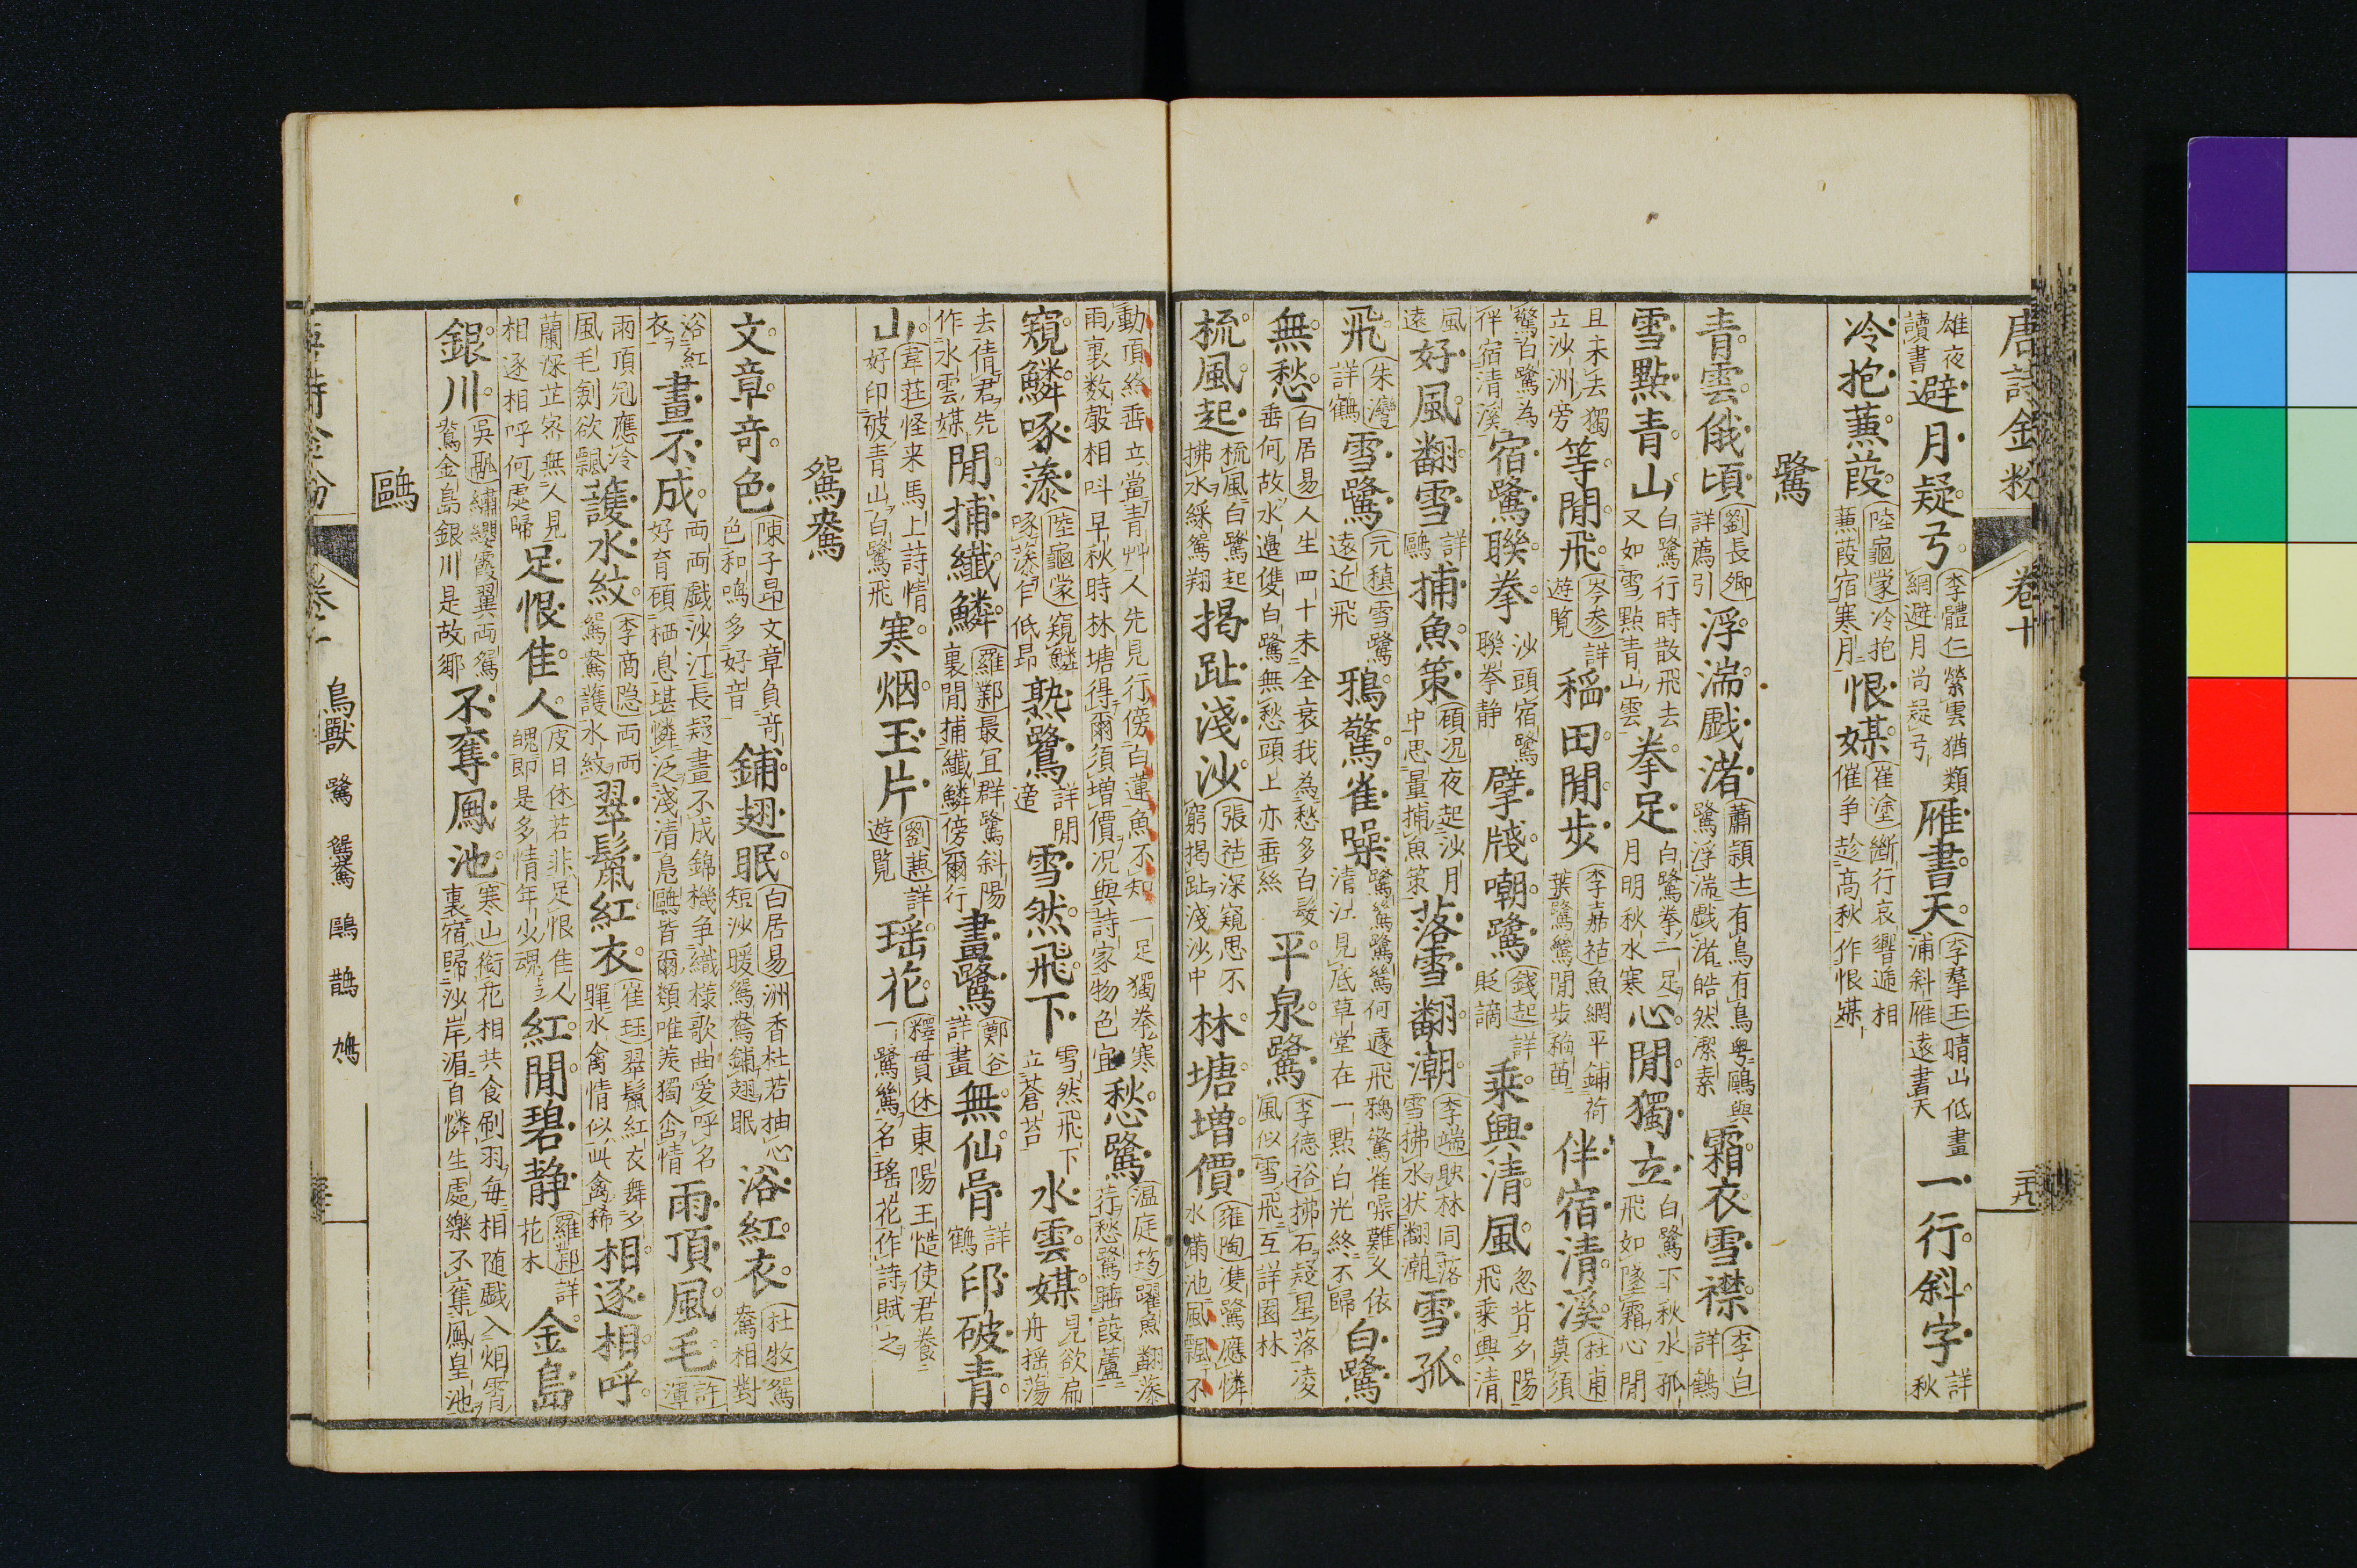 唐詩金粉 卷十 二十九
雄夜讀書 避月疑弓 李體仁縈雲猶類網避月尚疑弓 雁書天 李羣玉晴山低畫浦斜雁遠書天 一行斜字 詳秋
冷抱蒹葭 陸龜蒙冷抱蒹葭宿寒月 恨媒 崔塗斷行哀響遞相催爭趁高秋作恨媒
鷺
青雲俄頃 劉長卿詳薦引 浮湍戲渚 蕭頴士有鳥有鳥粤鷗與鷺浮湍戲渚皓然潔素 霜衣雪襟 李白詳鶴
雪點青山 白鷺行時散飛去又如雪點青山雲 拳足 白鷺拳一足月明秋水寒 心閒獨立 白鷺下秋水孤飛如墜霜心閒
且未去獨立沙洲旁 等閒飛 岑參詳遊覧 稲田閒步 李嘉祐魚網平鋪荷葉鷺鷥閒步稲苗 伴宿清溪 杜甫莫須
驚白鷺為伴宿清溪 宿鷺聯拳 沙頭宿鷺聯拳静 擘牋嘲鷺 錢起詳貶謫 乘興清風 忽背夕陽飛乘興清
風遠 好風翻雪 詳鷗 捕魚策 顧况夜起沙月中思量捕魚策 落雪翻潮 李端映林同落雪拂水状翻潮 雪孤
飛 朱灣詳鶴 雪鷺 元稹雪鷺遠近飛 鴉驚雀噪 鷺鷥鷺鷥何遽飛鴉驚雀噪難久依清江見底草堂在一點白光終不歸 白鷺
無愁 白居易人生四十未全衰我為愁多白髮垂何故水邊隻白鷺無愁頭上亦垂絲 平泉鷺 李德裕拂石疑星落凌風似雪飛互詳園林
梳風起 梳風白鷺起拂水綵鴛翔 掲趾淺沙 張祜深窺思不窮掲趾淺沙中 林塘增價 雍陶隻鷺應憐水滿池風飄不
動頂絲垂立當青艸人先見行傍白蓮魚不知一足獨拳寒雨裏数聲相叫早秋時林塘得爾須增價况與詩家物色宜 愁鷺 温庭筠躍魚翻藻荇愁鷺睡葭蘆
窺鱗啄藻 陸龜蒙窺鱗啄藻乍低昂 熟鷺 詳閒適 雪然飛下 雪然飛下立蒼苔 水雲媒 見欲扁舟摇蕩
去倩君先作水雲媒 閒捕纖鱗 羅鄴最宜群鷺斜陽裏閒捕纖鱗傍爾行 畫鷺 鄭谷詳畫 無仙骨 詳鶴 印破青
山 韋莊怪来馬上詩情好印破青山白鷺飛 寒烟玉片 劉蕙詳遊覧 瑶花 釋貫休東陽王慥使君養一鷺鷥名瑤花作詩賦之
鴛鴦
文章奇色 陳子昂文章負奇色和鳴多好音 鋪翅眠 白居易洲香杜若抽心短沙暖鴛鴦鋪翅眠 浴紅衣 杜牧鴛鴦相對
浴紅衣 畫不成 両両戲沙汀長疑畫不成錦機爭織様歌曲愛呼名好育頋栖息堪憐泛淺清鳧鷗皆爾類唯羨獨含情 雨頂風毛 許渾
雨頂冠應冷風毛剣欲飄 護水紋 李商隐両両鴛鴦護水紋 翠鬣紅衣 崔珏翠鬣紅衣舞夕暉水禽情似此禽稀 相逐相呼
蘭深芷密無人見相逐相呼何處歸 足恨佳人 皮日休若非足恨佳人魄即是多情年少魂 紅閒碧静 羅鄴詳花木 金島
銀川 呉融繡纓霞翼両鴛鴦金島銀川是故郷 不奪鳳池 寒山銜花相共食刷羽每相随戲入烟霄裏宿歸沙岸湄自憐生處樂不奪鳳皇池
鷗
鳥獸 鷺 鴛鴦 鷗 鵲 鳩